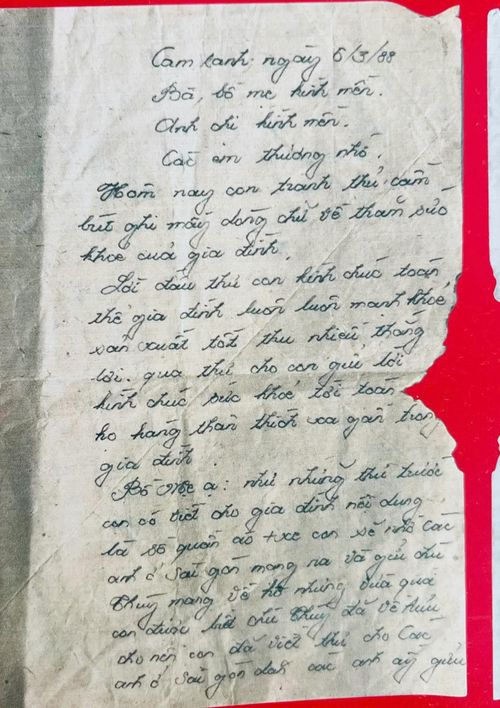 Cam ranh ngày 6/3/88
Bà, bố mẹ kính mến.
Anh chị kính mến.
Các em thương nhớ.
Hôm nay con tranh thủ cầm
bút ghi mấy dòng chữ về thăm sức
khoẻ cuả gia đình.
Lời đầu thư con kính chúc toàn
thể gia đình luôn luôn mạnh khoẻ
sản xuất tốt thu nhiều thắng
lợi. qua thư cho con gửi lời
kính chúc sức khoẻ tới toàn
họ hàng thân thích xa gần trong
gia đình.
Bố Mẹ ạ: như những thư trước
con có viết cho gia đình nội dung
là số quần áo + xe con sẽ nhờ các
anh ở Sài gòn mang ra và gửi chú
Thuỷ mang về hộ nhưng vừa qua
con được biết chú Thuỷ đã về hưu
cho nên con đã viết thư cho Các
anh ở Sài gòn các anh ấy gửi